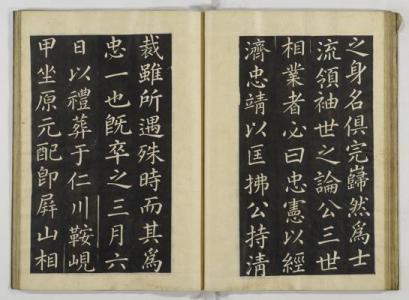 之身名俱完巋然爲士
流領袖世之論公三世
相業者必曰忠憲以經
濟忠靖以匡拂公持淸
裁雖所遇殊時而其爲
忠一也旣卒之三月六
日以禮葬于仁川鞍峴
甲坐原元配卽屛山相